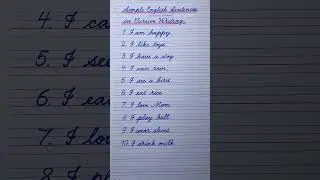 Simple English Sentences
in Cursive Writing
1. I am happy.
2. I like toys.
3. I have a dog
4. I can run.
5. I see a bird.
6. I eat rice
7. I love Mom.
8. I play ball.
9. I wear shoes.
10. I drink milk
4. I can
5. I see
6. I ea
7. I lo
8. I pla